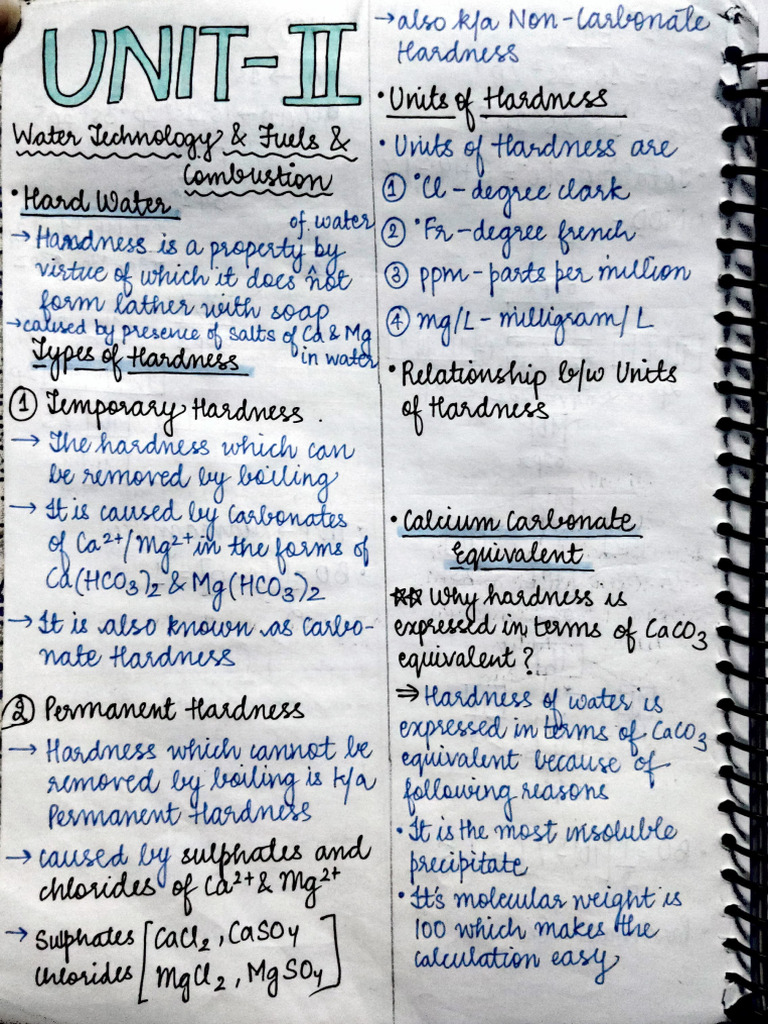 UNIT-II
Water Technology & Fuels &
Combustion
• Hard Water
of water
→ Hardness is a property by
virtue of which it does not
form lather with soap
→ caused by presence of salts of Ca & Mg
in water
Types of Hardness
① Temporary Hardness.
→ The hardness which can
be removed by boiling
→ It is caused by carbonates
of Ca²⁺/Mg²⁺ in the forms of
Ca(HCO₃)₂ & Mg(HCO₃)₂
→ It is also known as Carbo-
nate Hardness
② Permanent Hardness
→ Hardness which cannot be
removed by boiling is k/a
Permanent Hardness
→ caused by sulphates and
chlorides of Ca²⁺ & Mg²⁺
→ Sulphates [CaCl₂, CaSO₄
chlorides MgCl₂, MgSO₄]
→ also k/a Non-Carbonate
Hardness
• Units of Hardness
• Units of Hardness are
① °Cl - degree clark
② °Fr - degree french
③ ppm - parts per million
④ mg/L - milligram/L
• Relationship b/w Units
of Hardness
• Calcium Carbonate
Equivalent
** Why hardness is
expressed in terms of CaCO₃
equivalent?
⇒ Hardness of water is
expressed in terms of CaCO₃
equivalent because of
following reasons
• It is the most insoluble
precipitate
• It's molecular weight is
100 which makes the
calculation easy